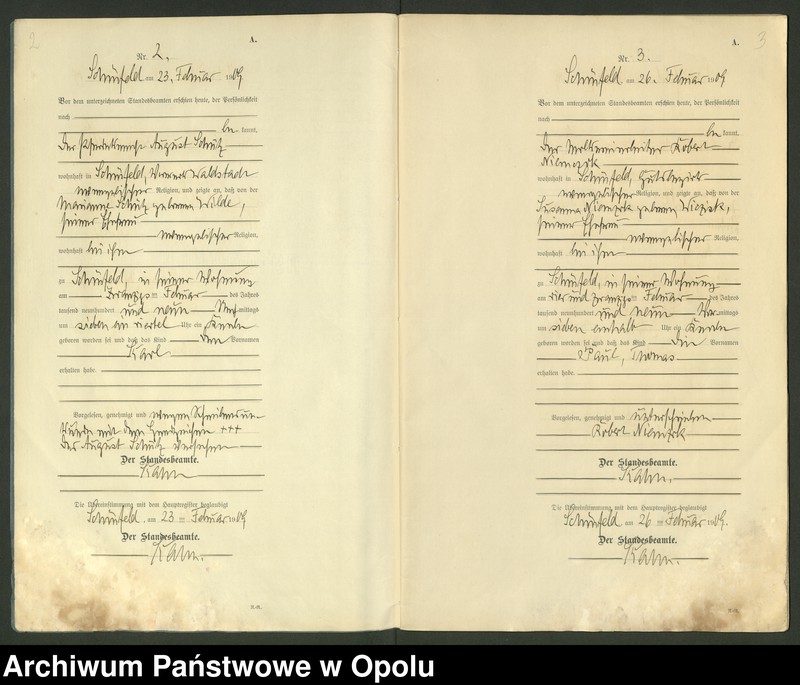 2
A.
Nr. 2.
Schönfeld am 23. Februar 1909
Vor dem unterzeichneten Standesbeamten erschien heute, der Persönlichkeit
nach
be kannt,
der Pferdeknecht August Schütz
wohnhaft in Schönfeld, Waldstadt
evangelischer Religion, und zeigte an, daß von der
Marianne Schütz geborene Wilde,
seiner Ehefrau
evangelischer Religion,
wohnhaft bei ihm
zu Schönfeld, in seiner Wohnung
am Februar des Jahres
tausend neunhundert und neun Nachmittags
um sieben ein viertel Uhr ein Knabe
geboren worden sei und daß das Kind den Vornamen
Karl
erhalten habe.
Vorgelesen, genehmigt und wegen Schreibensun-
kunde mit dem Handzeichen +++
des August Schütz versehen
Der Standesbeamte.
Kahn
Die Übereinstimmung mit dem Hauptregister beglaubigt
Schönfeld, am 23 ten Februar 1909
Der Standesbeamte.
Kahn.
3
A.
Nr. 3.
Schönfeld am 26. Februar 1909
Vor dem unterzeichneten Standesbeamten erschien heute, der Persönlichkeit
nach
be kannt,
der Robert
wohnhaft in Schönfeld, Gutsbezirk
evangelischer Religion, und zeigte an, daß von der
Susanna geborene
seiner Ehefrau
evangelischer Religion,
wohnhaft bei ihm
zu Schönfeld, in seiner Wohnung
am vier und zwanzigsten Februar des Jahres
tausend neunhundert und neun Vormittags
um sieben einhalb Uhr ein Knabe
geboren worden sei und daß das Kind den Vornamen
Paul, Thomas
erhalten habe.
Vorgelesen, genehmigt und unterschrieben
Robert
Der Standesbeamte.
Kahn.
Die Übereinstimmung mit dem Hauptregister beglaubigt
Schönfeld am 26 ten Februar 1909.
Der Standesbeamte.
Kahn.
Archiwum Państwowe w Opolu